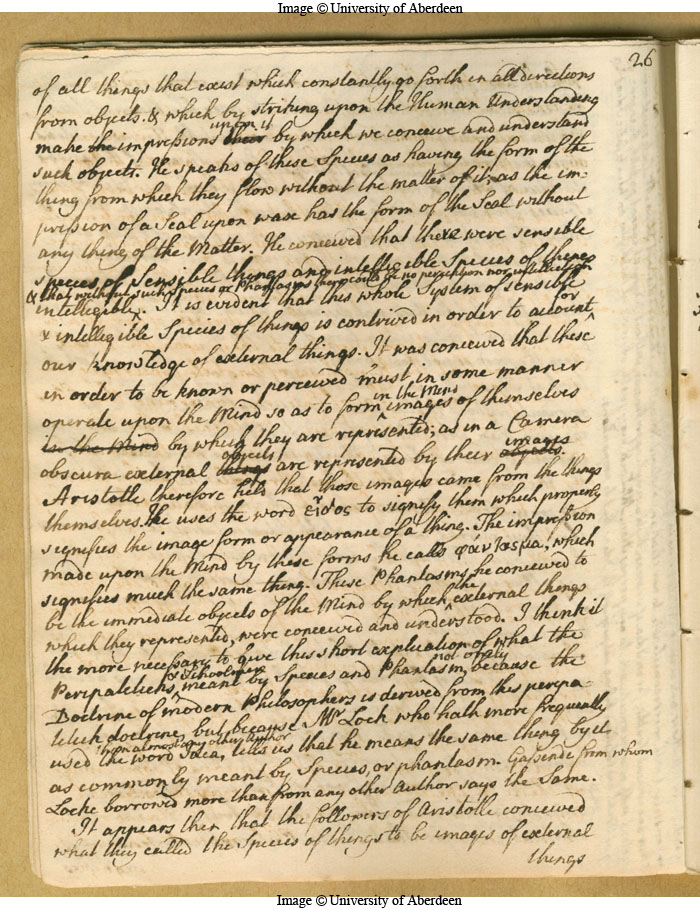 Image © University of Aberdeen
26
of all things that exist which constantly go forth in all directions
from objects. & which by striking upon the Human Understanding
make the impressions upon it by which we conceive and understand
such objects. He speaks of these Species as having the form of the
thing from which they flow without the matter of it; as the im-
pression of a Seal upon wax has the form of the Seal without
any thing of the Matter. He conceived that there were sensible
species of Sensible things and intelligible Species of things
& that without such Species or Phantasms there could be no perception nor intellection
intelligible. It is evident that this whole System of sensible
& intelligible Species of things is contrived in order to account for
our knowledge of external things. It was conceived that these
in order to be known or perceived must in some manner
operate upon the Mind so as to form in the Mind images of themselves
in the Mind by which they are represented; as in a Camera
obscura external objects things are represented by their images objects.
Aristotle therefore held that those images came from the things
themselves. He uses the word εἶδος to signify them which properly
signifies the image form or appearance of a thing. The impression
made upon the Mind by these forms he calls φάντασμα, which
signifies much the same thing. These Phantasms he conceived to
be the immediate objects of the Mind by which the external things
which they represented, were conceived and understood. I think it
the more necessary to give this short explication of what the
Peripateticks & Schoolmen meant by Species and Phantasm, not onely because the
Doctrine of modern Philosophers is derived from this peripa-
tetick doctrine, but because Mr Lock who hath more frequently
used the word Idea, than almost any other Author tells us that he means the same thing by it
as commonly meant by Species, or phantasm. Gassende from whom
Locke borrowed more than from any other Author says the Same.
It appears then that the followers of Aristotle conceived
what they called the Species of things to be images of external
things
Image © University of Aberdeen